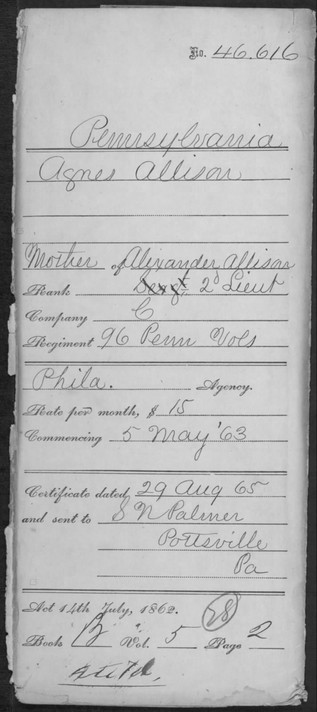 No. 46.616
Pennsylvania
Agnes Allison
Mother of Alexander Allison
Rank Sergt. 2d Lieut
Company C
Regiment 96 Penn Vols
Phila. Agency.
Rate per month, $ 15
Commencing 5 May '63
Certificate dated 29 Aug 65
and sent to S N Palmer
Pottsville
Pa
Act 14th July, 1862.
28
Book B" Vol. 5 Page 2